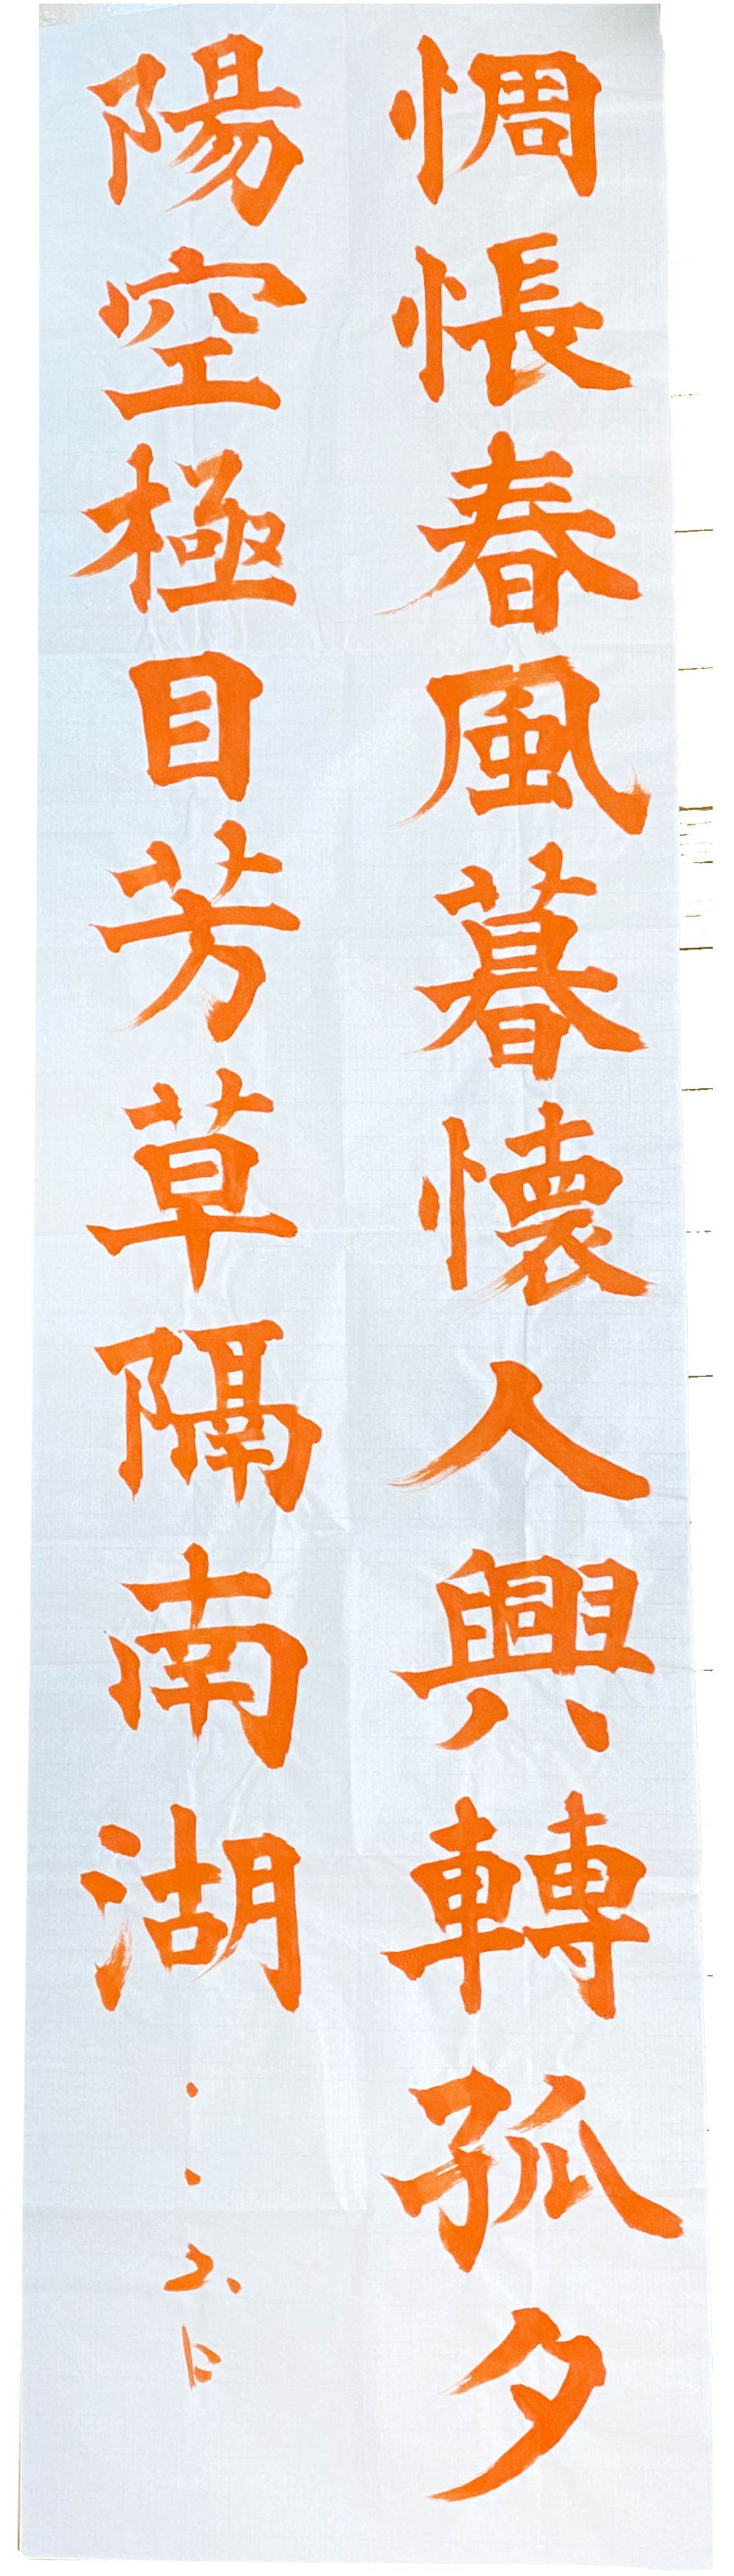 惆悵春風暮懐人興轉孤夕
陽空極目芳草隔南湖